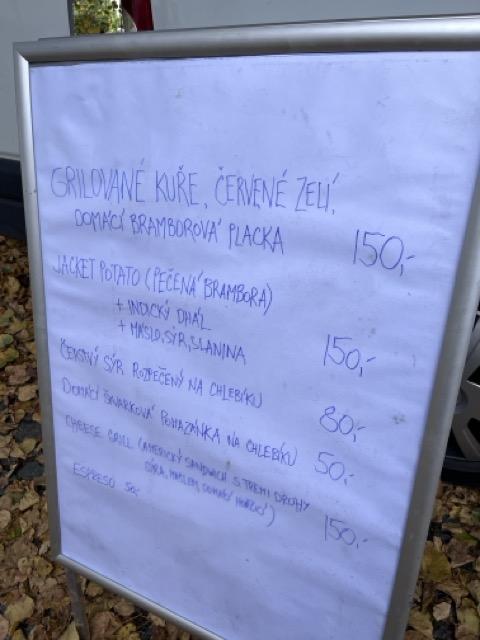 GRILOVANÉ KUŘE, ČERVENÉ ZELÍ,
DOMÁCÍ BRAMBOROVÁ PLACKA 150,-
JACKET POTATO (PEČENÁ BRAMBORA)
+ INDICKÝ DHÁL
+ MÁSLO, SÝR, SLANINA 150,-
SÝR ROZPEČENÝ NA CHLEBÍKU 80,-
DOMÁCÍ ŠKVARKOVÁ POMAZÁNKA NA CHLEBÍKU 50,-
CHEESE GRILL (AMERICKÝ SANDWICH S TŘEMI DRUHY
SÝRA, MÁSLEM, DOMÁCÍ) 150,-
ESPRESO 50,-